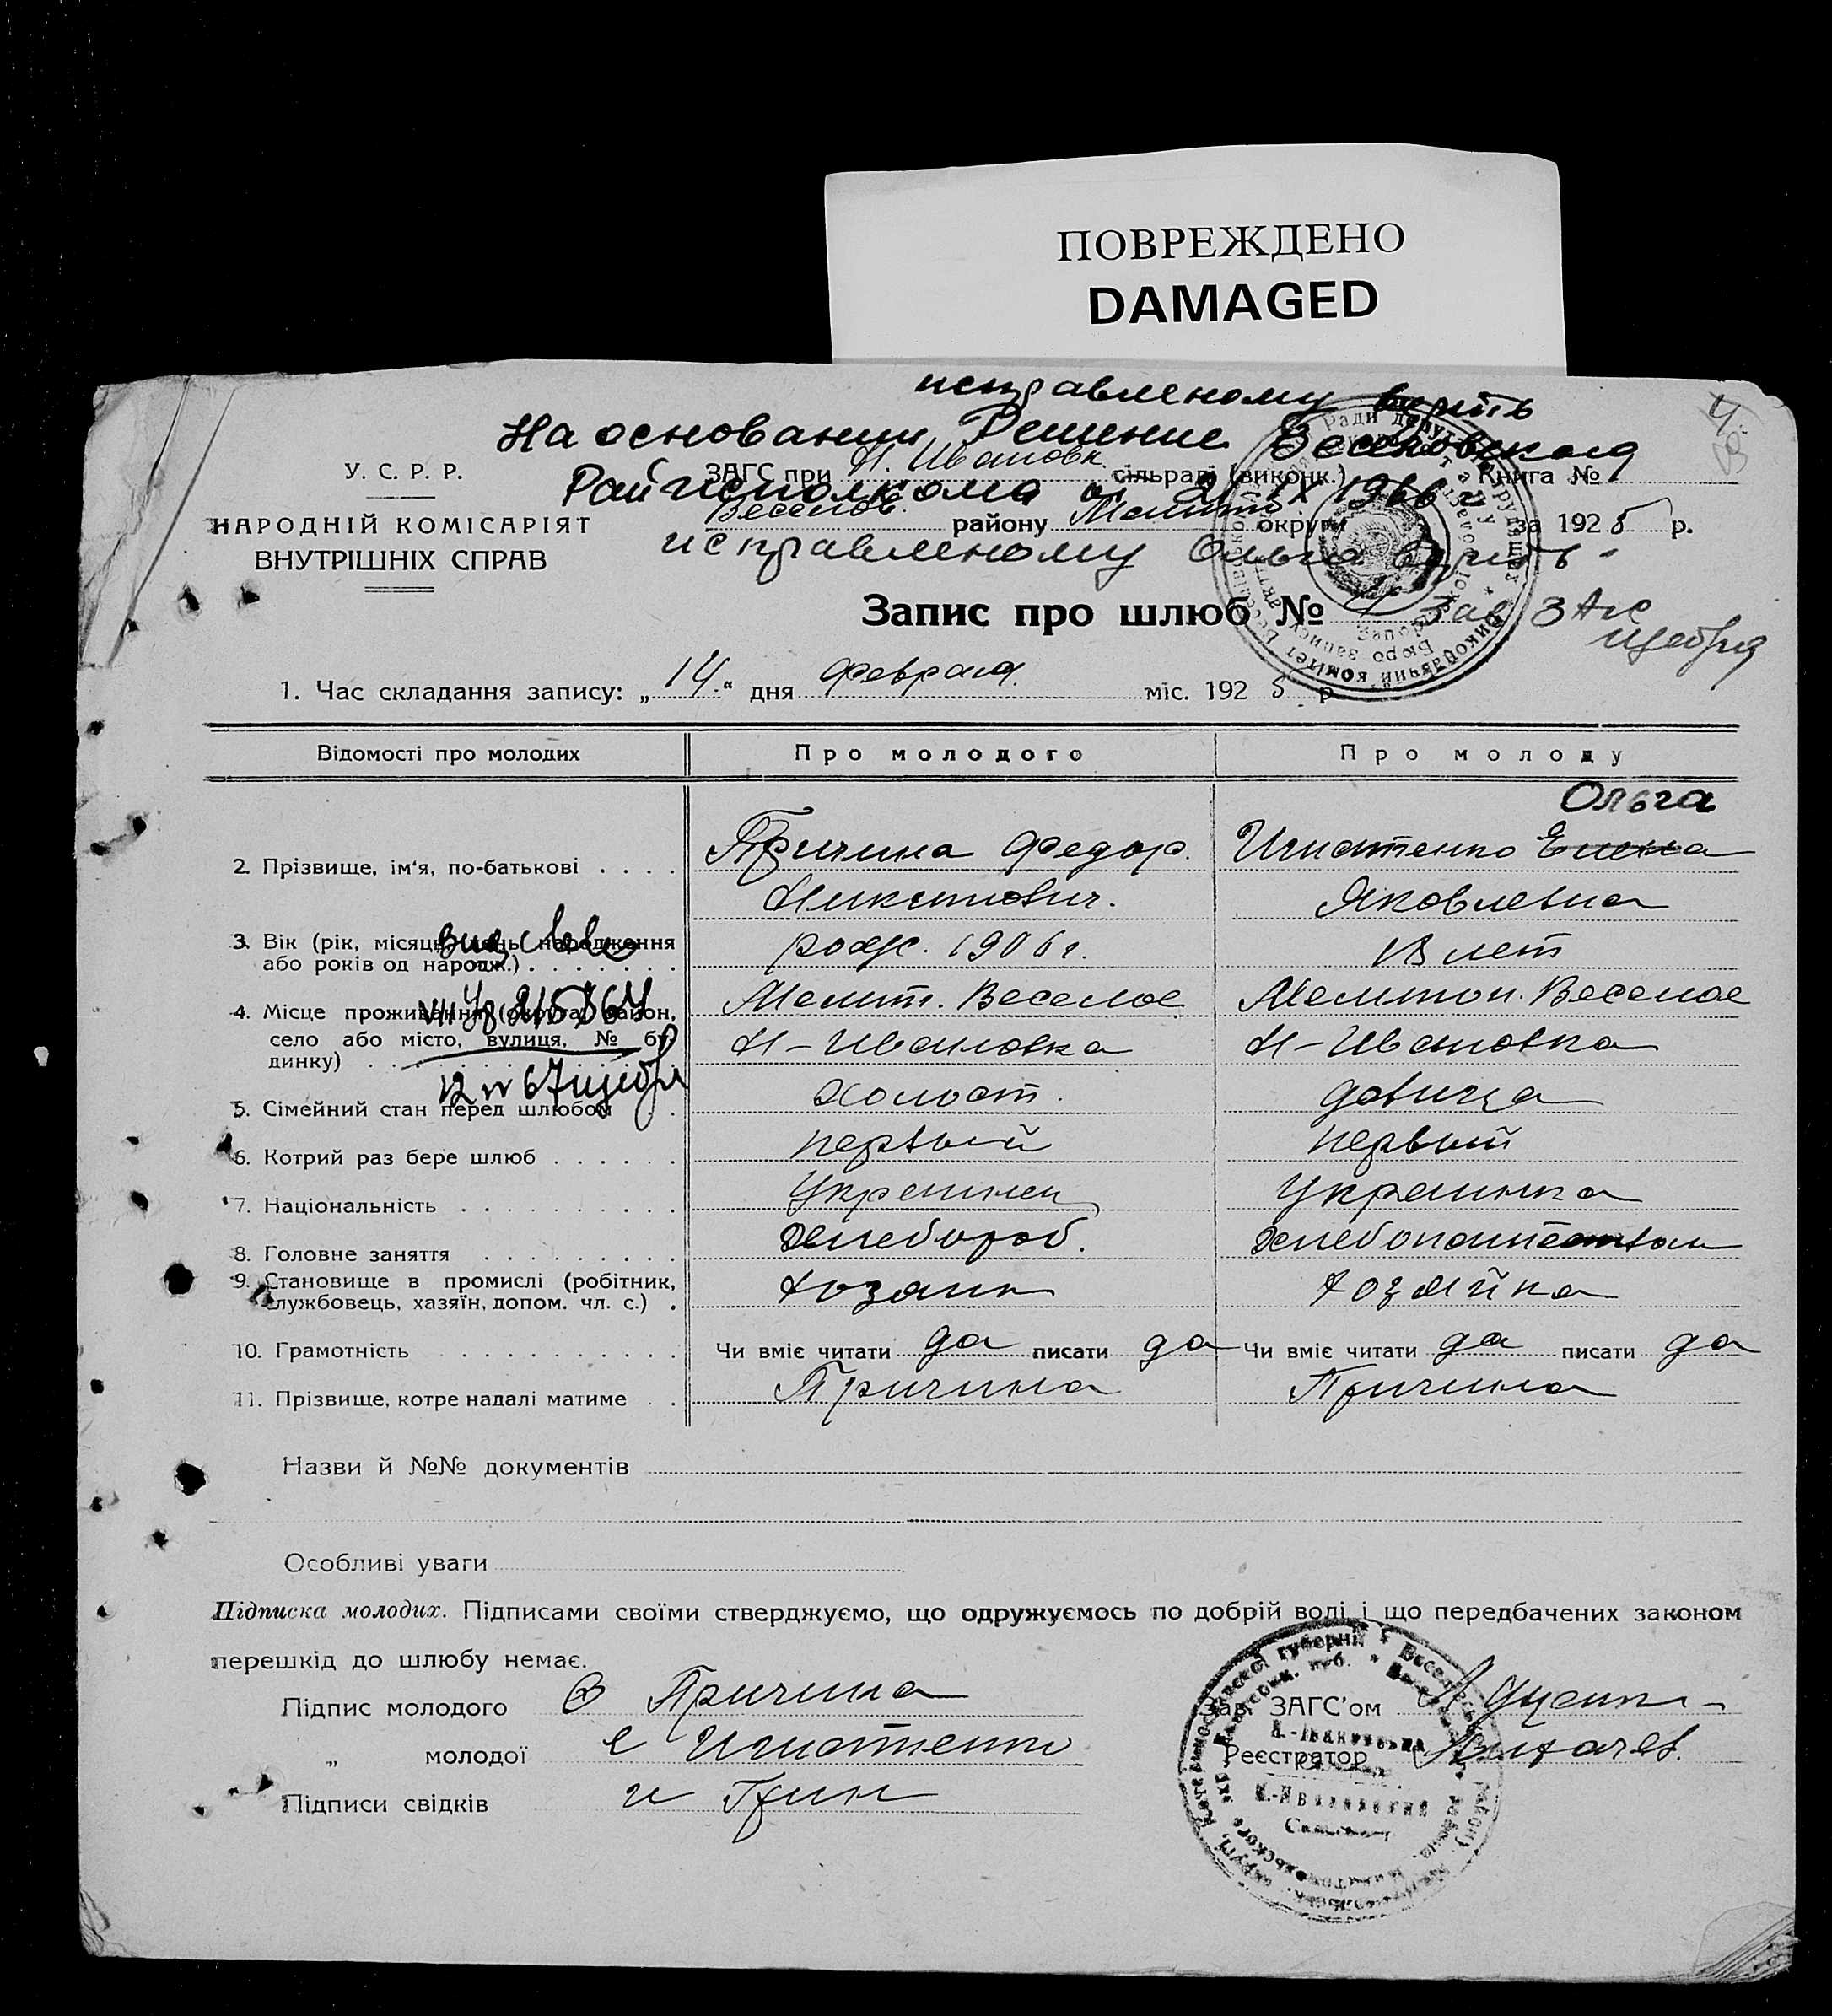 ПОВРЕЖДЕНО
DAMAGED
исправленому верить
На основании Решение Веселовского
Райисполкома от 21 IX 1966 г
исправленому Ольга верить
Зав ЗАГС
4.
У. С. Р. Р.
НАРОДНІЙ КОМІСАРІЯТ
ВНУТРІШНІХ СПРАВ
ЗАГС при Н. Ивановк. сільраді (виконк.) Книга №
Веселов. району Мелито округи за 1925 р.
Запис про шлюб № 4
1. Час складання запису: „14“ дня февраля міс. 1925 р.
Відомості про молодих Про молодого Про молоду
Ольга
2. Прізвище, ім'я, по-батькові . . . . Причина Федор. Игнатенко Елена
Никитович. Яковлевна
3. Вік (рік, місяць, день народження
або років од народж.) . . . . . . . рожд. 1906 г. 18 лет
4. Місце проживання (округа, район, Мелит. Веселое Мелитоп. Веселое
село або місто, вулиця, № бу-
динку) Н-Ивановка Н-Ивановка
5. Сімейний стан перед шлюбом холост. девица
6. Котрий раз бере шлюб . . . . . . первый первый
7. Національність . . . . . . . . . . Украинец Украинка
8. Головне заняття . . . . . . . . . Хлебороб.
9. Становище в промислі (робітник,
службовець, хазяїн, допом. чл. с.) . хозяин хозяйка
10. Грамотність . . . . . . . . . . . Чи вміє читати да писати да Чи вміє читати да писати да
11. Прізвище, котре надалі матиме . . Причина Причина
Назви й №№ документів
Особливі уваги
Підписка молодих. Підписами своїми стверджуємо, що одружуємось по добрій волі і що передбачених законом
перешкід до шлюбу немає.
Підпис молодого Причина
Зав. ЗАГС'ом
„ молодої е Игнатенко
Реєстратор
Підписи свідків